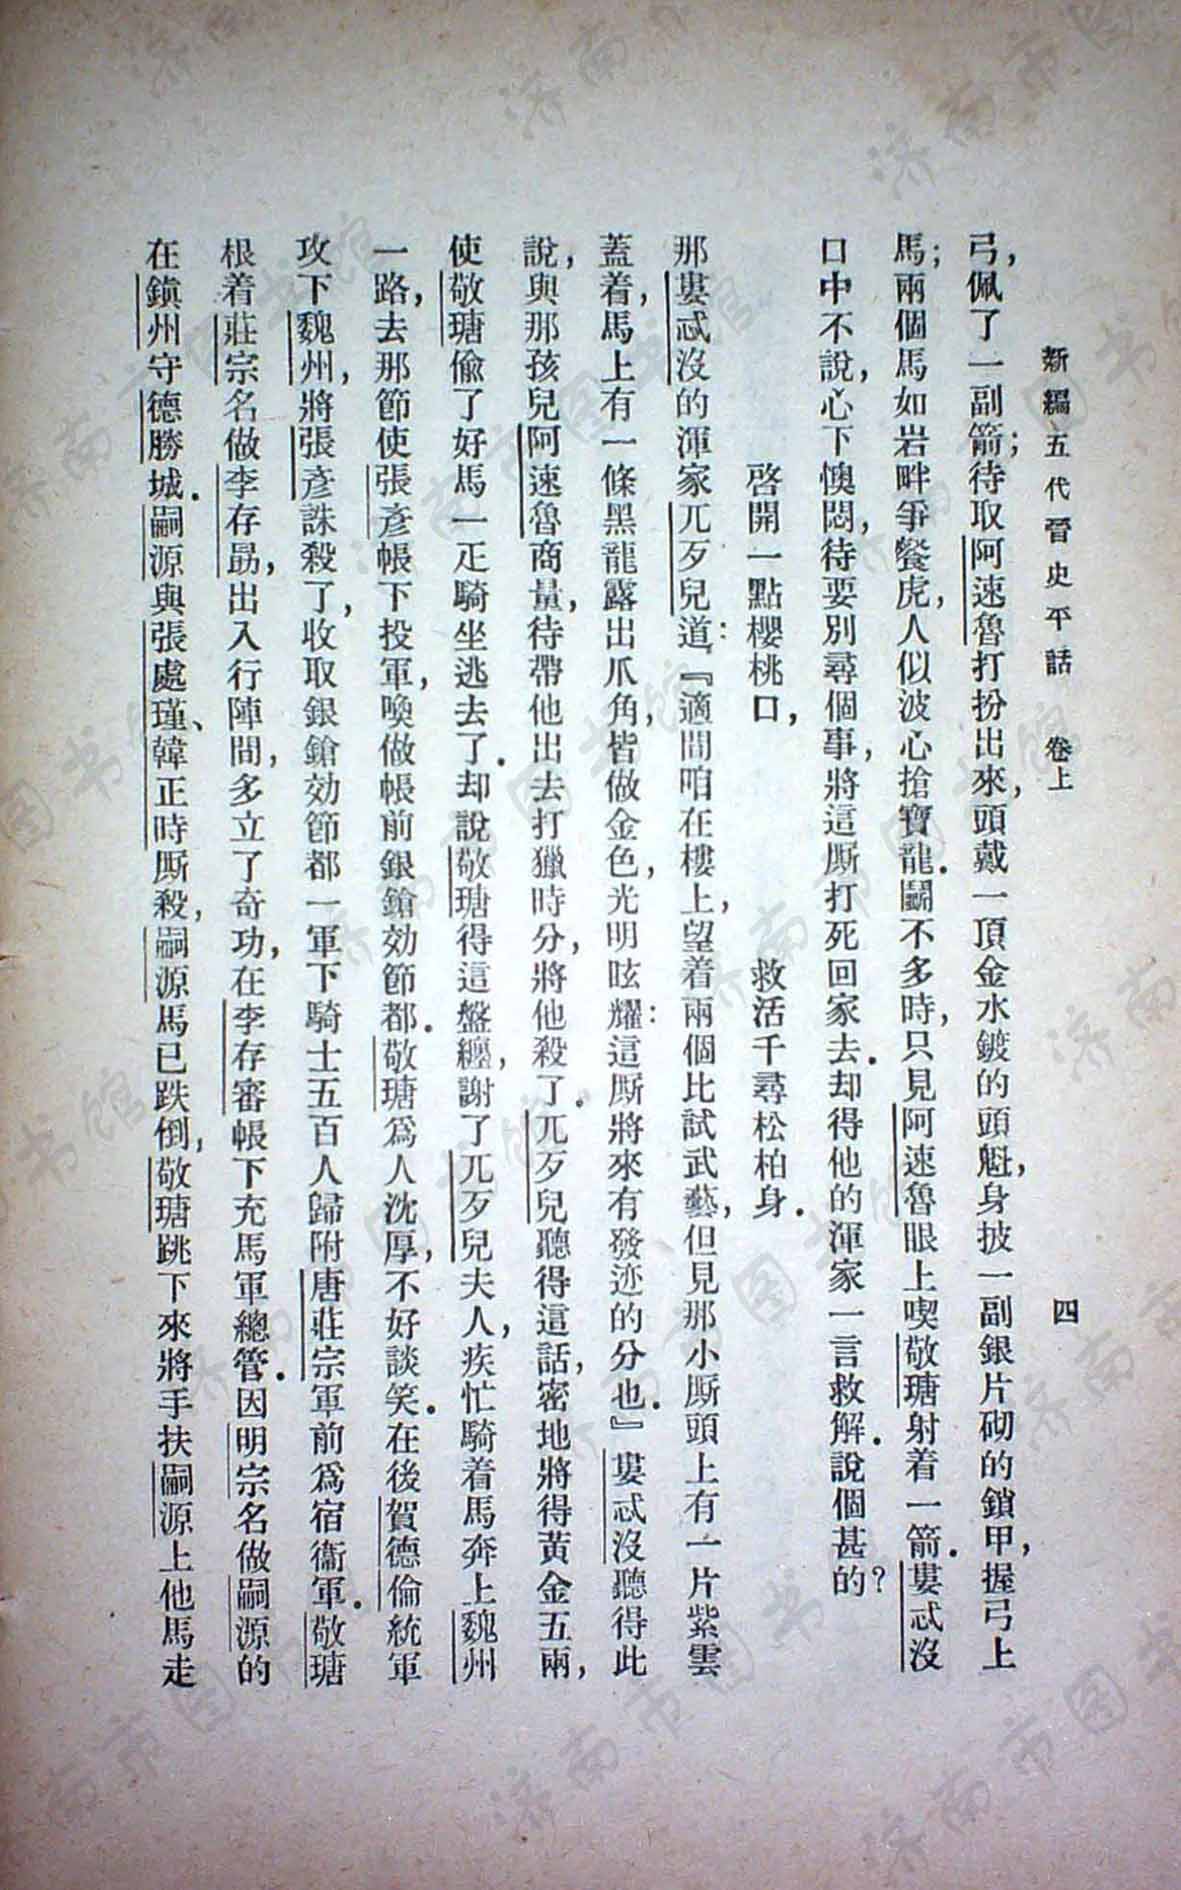 新編五代晉史平話　卷上　四
弓，佩了一副箭；待取阿速魯打扮出來，頭戴一頂金水鍍的頭魁，身披一副銀片砌的鎖甲，握弓上
馬；兩個馬如岩畔爭餐虎，人似波心搶寶龍．鬭不多時，只見阿速魯眼上喫敬瑭射着一箭．婁忒沒
口中不說，心下懊悶，待要別尋個事，將這厮打死回家去．却得他的渾家一言救解．說個甚的？
啓開一點櫻桃口，　救活千尋松柏身．
那婁忒沒的渾家兀歹兒道：『適間咱在樓上，望着兩個比試武藝，但見那小厮頭上有一片紫雲
蓋着，馬上有一條黑龍露出爪角，皆做金色，光明眩耀：這厮將來有發迹的分也．』婁忒沒聽得此
說，與那孩兒阿速魯商量，待帶他出去打獵時分，將他殺了．兀歹兒聽得這話，密地將得黃金五兩，
使敬瑭偷了好馬一疋騎坐逃去了．却說敬瑭得這盤纏，謝了兀歹兒夫人，疾忙騎着馬奔上魏州
一路，去那節使張彥帳下投軍，喚做帳前銀鎗効節都．敬瑭爲人沈厚，不好談笑．在後賀德倫統軍
攻下魏州，將張彥誅殺了，收取銀鎗効節都一軍下騎士五百人歸附唐莊宗軍前爲宿衞軍．敬瑭
根着莊宗名做李存勗，出入行陣間，多立了奇功，在李存審帳下充馬軍總管．因明宗名做嗣源的
在鎭州守德勝城．嗣源與張處瑾、韓正時厮殺，嗣源馬已跌倒，敬瑭跳下來將手扶嗣源上他馬走
济南市图书馆